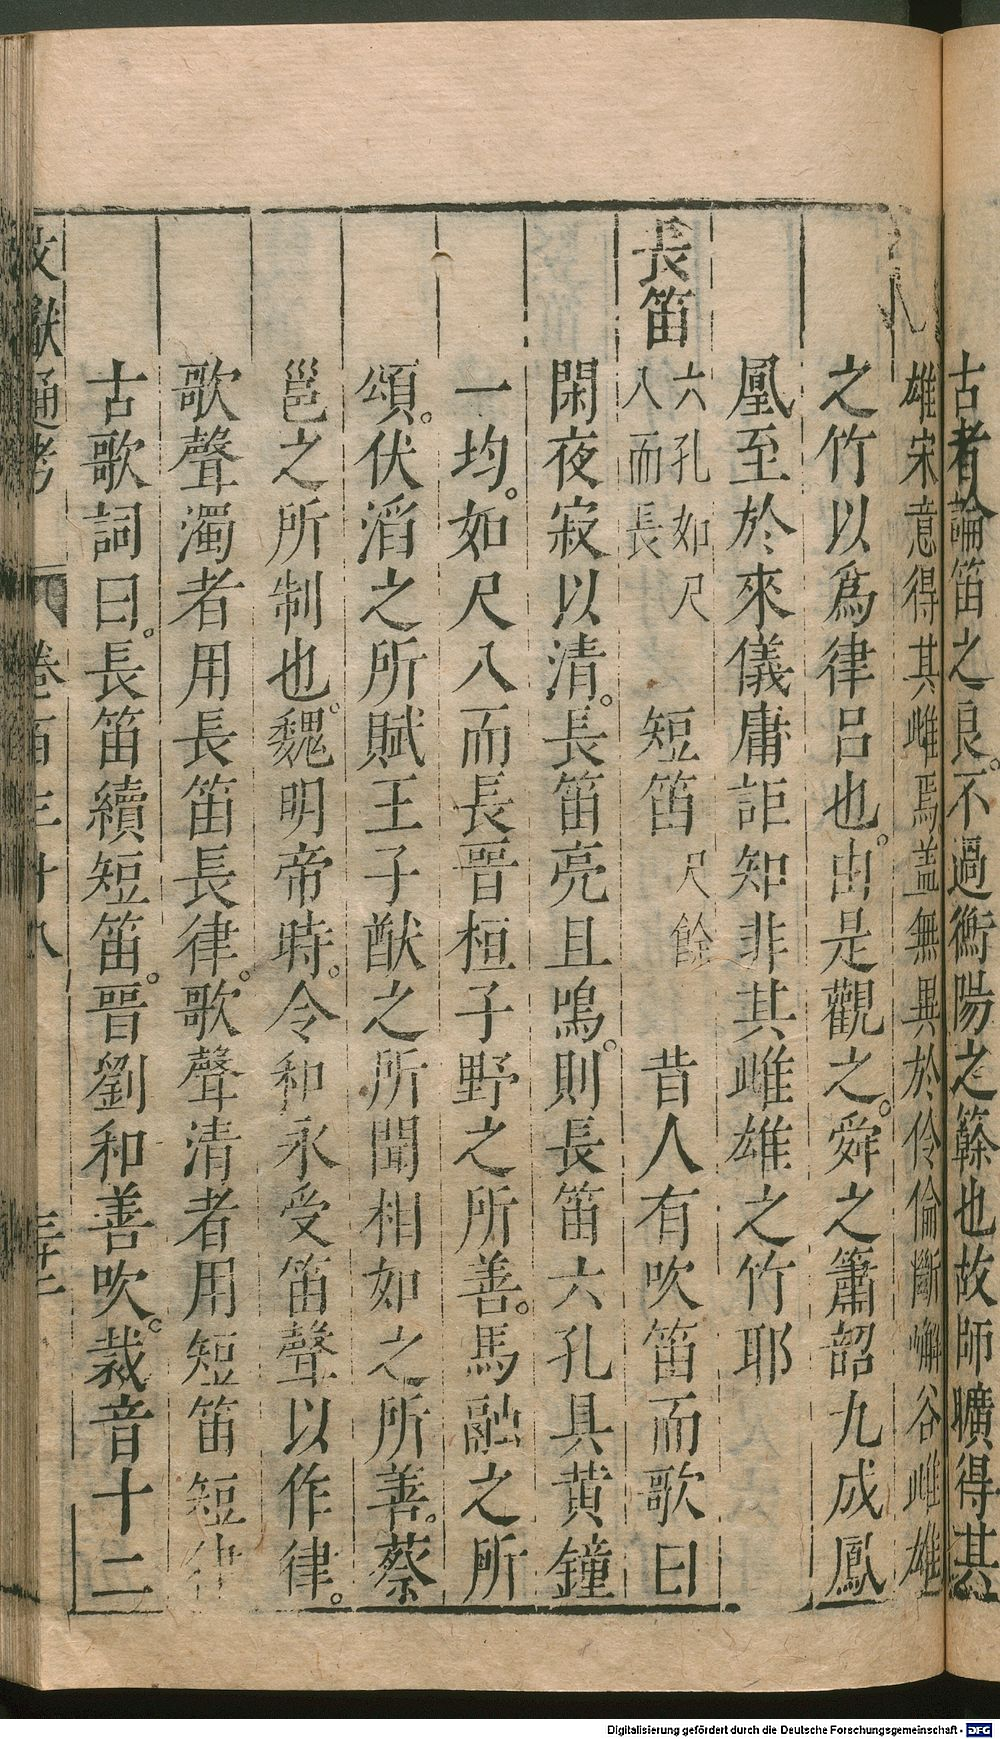 古者論笛之良。不過衡陽之簳也故師曠得其
雄宋意得其雌焉盖無異於伶倫斷嶰谷雌雄
之竹以為律呂也。由是觀之。舜之簫韶九成鳳
凰至於來儀庸詎知非其雌雄之竹耶
長笛 六孔如尺八而長 短笛 尺餘 昔人有吹笛而歌曰
閑夜寂以清。長笛亮且鳴。則長笛六孔具黃鐘
一均。如尺八而長晉桓子野之所善。馬融之所
頌。伏滔之所賦王子猷之所聞相如之所善。蔡
邕之所制也。魏明帝時。令和永受笛聲以作律。
歌聲濁者用長笛長律。歌聲清者用短笛短律
古歌詞曰。長笛續短笛。晉劉和善吹。裁音十二
文獻通考 卷一百三十八 三十二
Digitalisierung gefördert durch die Deutsche Forschungsgemeinschaft - DFG